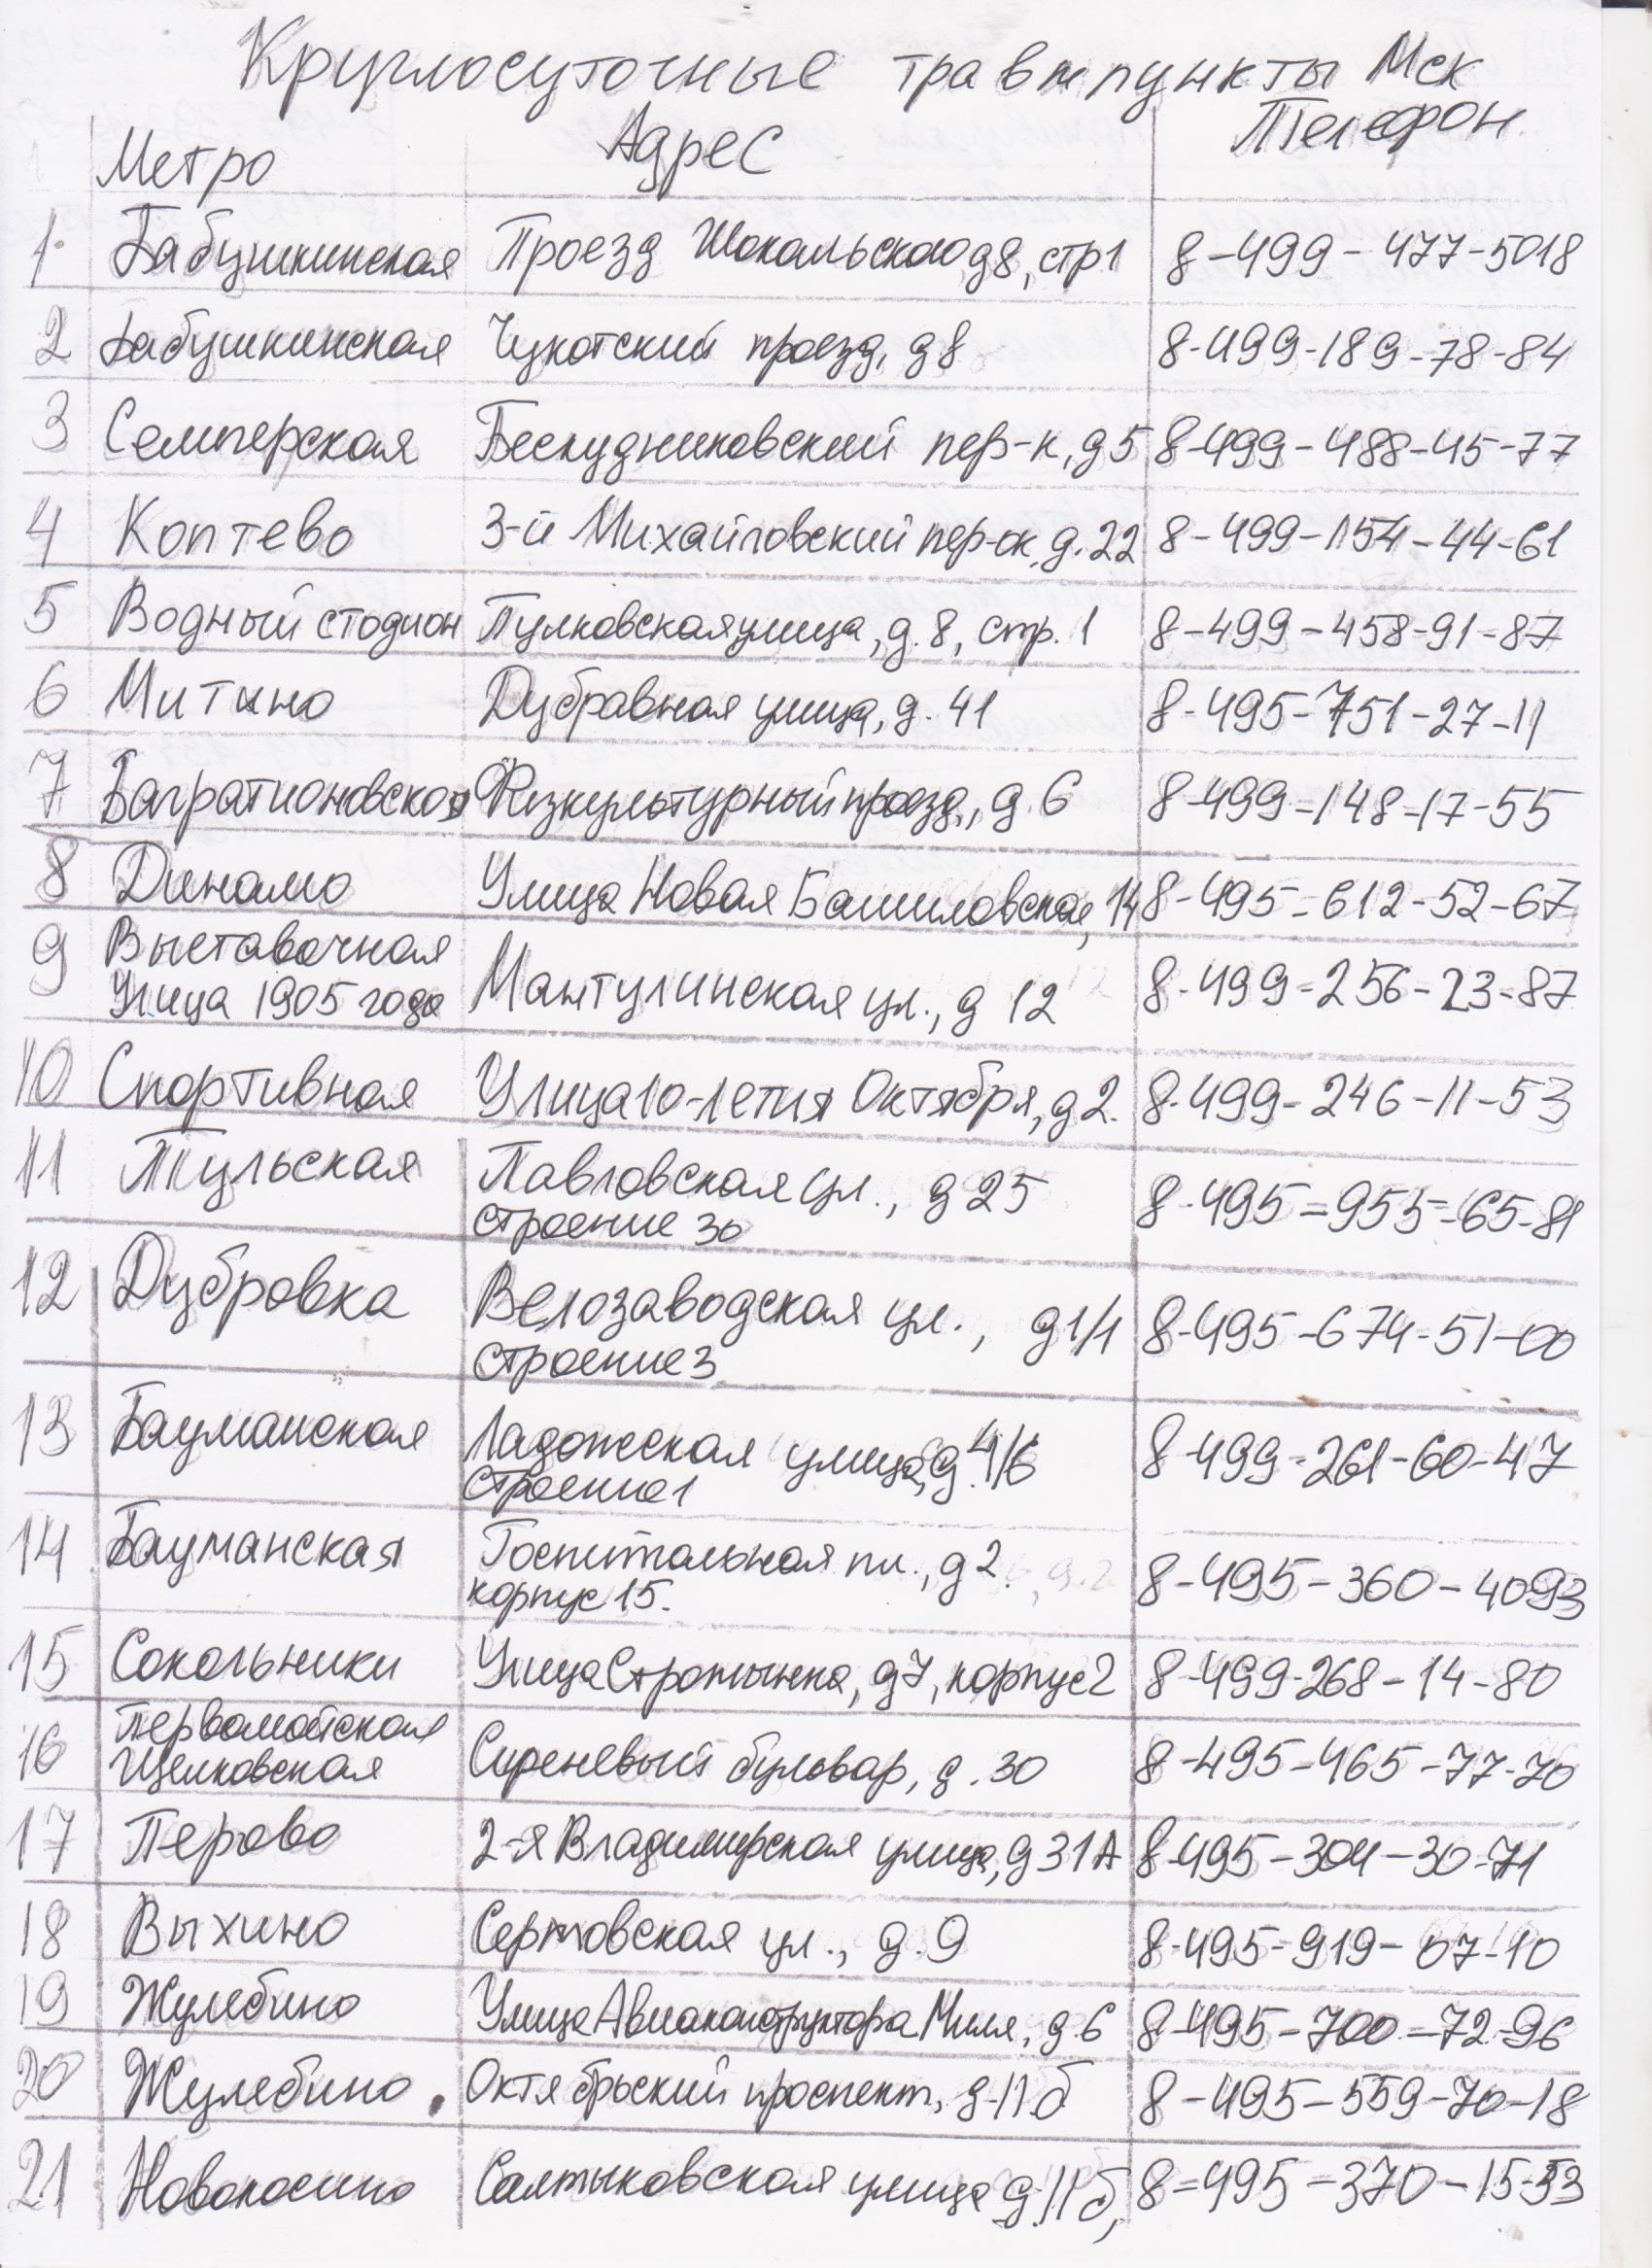 Круглосуточные травмпункты Мск
Метро Адрес Телефон
1. Бабушкинская Проезд Шокальского д8, стр1 8-499-477-5018
2 Бабушкинская Чукотский проезд, д8 8-499-189-78-84
3 Семперская Бескудниковский пер-к, д5 8-499-488-45-77
4 Коптево 3-й Михайловский пер-ок, д.22 8-499-154-44-61
5 Водный стодион Пулковская улица, д.8, стр.1 8-499-458-91-87
6 Митино Дубравная улица, д.41 8-495-751-27-11
7 Багратионовская Физкультурный проезд, д.6 8-499-148-17-55
8 Динамо Улица Новая Башиловская, 14 8-495-612-52-67
9 Выставочная
Улица 1905 года Мантулинская ул., д 12 8-499-256-23-87
10 Спортивная Улица 10-летия Октября, д2. 8-499-246-11-53
11 Тульская Павловская ул., д 25
строение 30 8-495-955-65-81
12 Дубровка Велозаводская ул., д1/1
строение 3 8-495-674-51-00
13 Бауманская Ладожская улица, д.4/6
строение 1 8-499-261-60-47
14 Бауманская Госпитальная пл., д2
корпус 15. 8-495-360-4093
15 Сокольники Улица Стромынка, д7, корпус 2 8-499-268-14-80
16 Первомайская
Щелковская Сиреневый бульвар, д.30 8-495-465-77-70
17 Перово 2-я Владимирская улица, д 31А 8-495-304-30-71
18 Выхино Сормовская ул., д.9 8-495-919-07-10
19 Жулебино Улица Авиаконструктора Миля, д.6 8-495-700-72-96
20 Жулебино. Октябрьский проспект, д-11б 8-495-559-70-18
21 Новокосино Салтыковская улица д.11б, 8-495-370-15-53